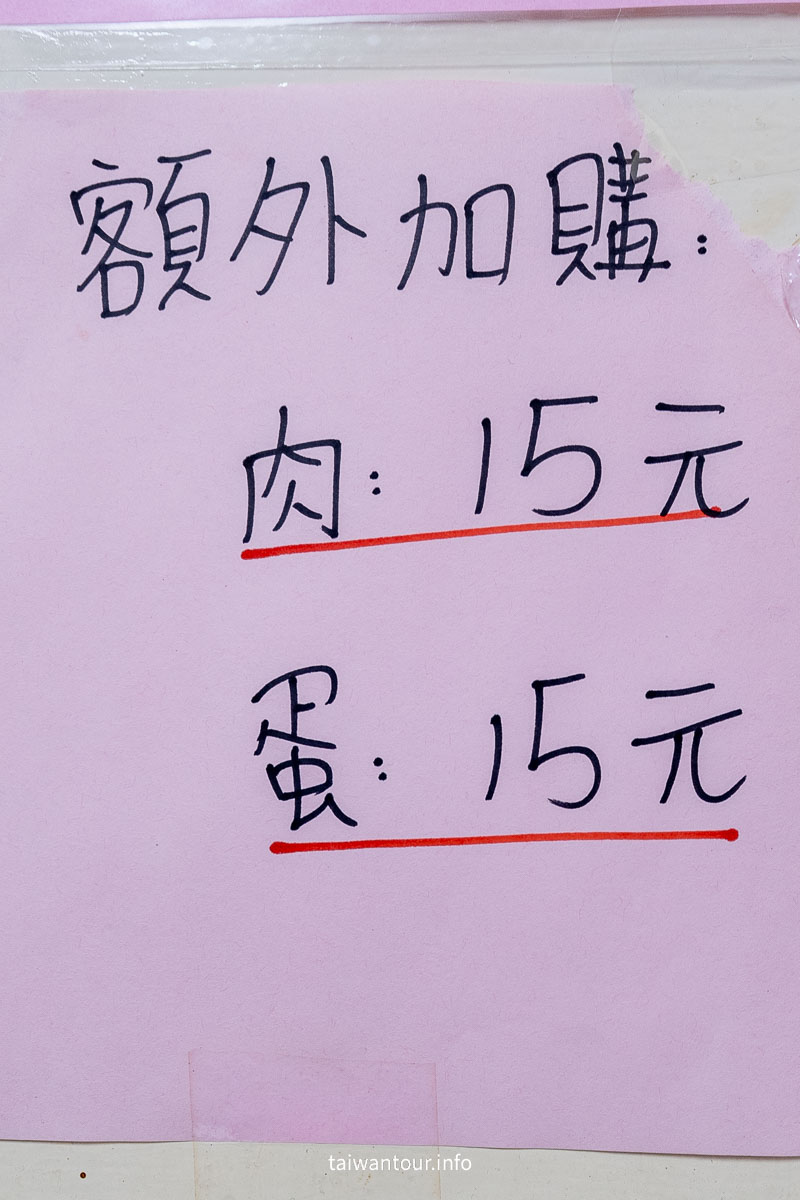 額外加購:
肉: 15元
蛋: 15元
taiwantour.info